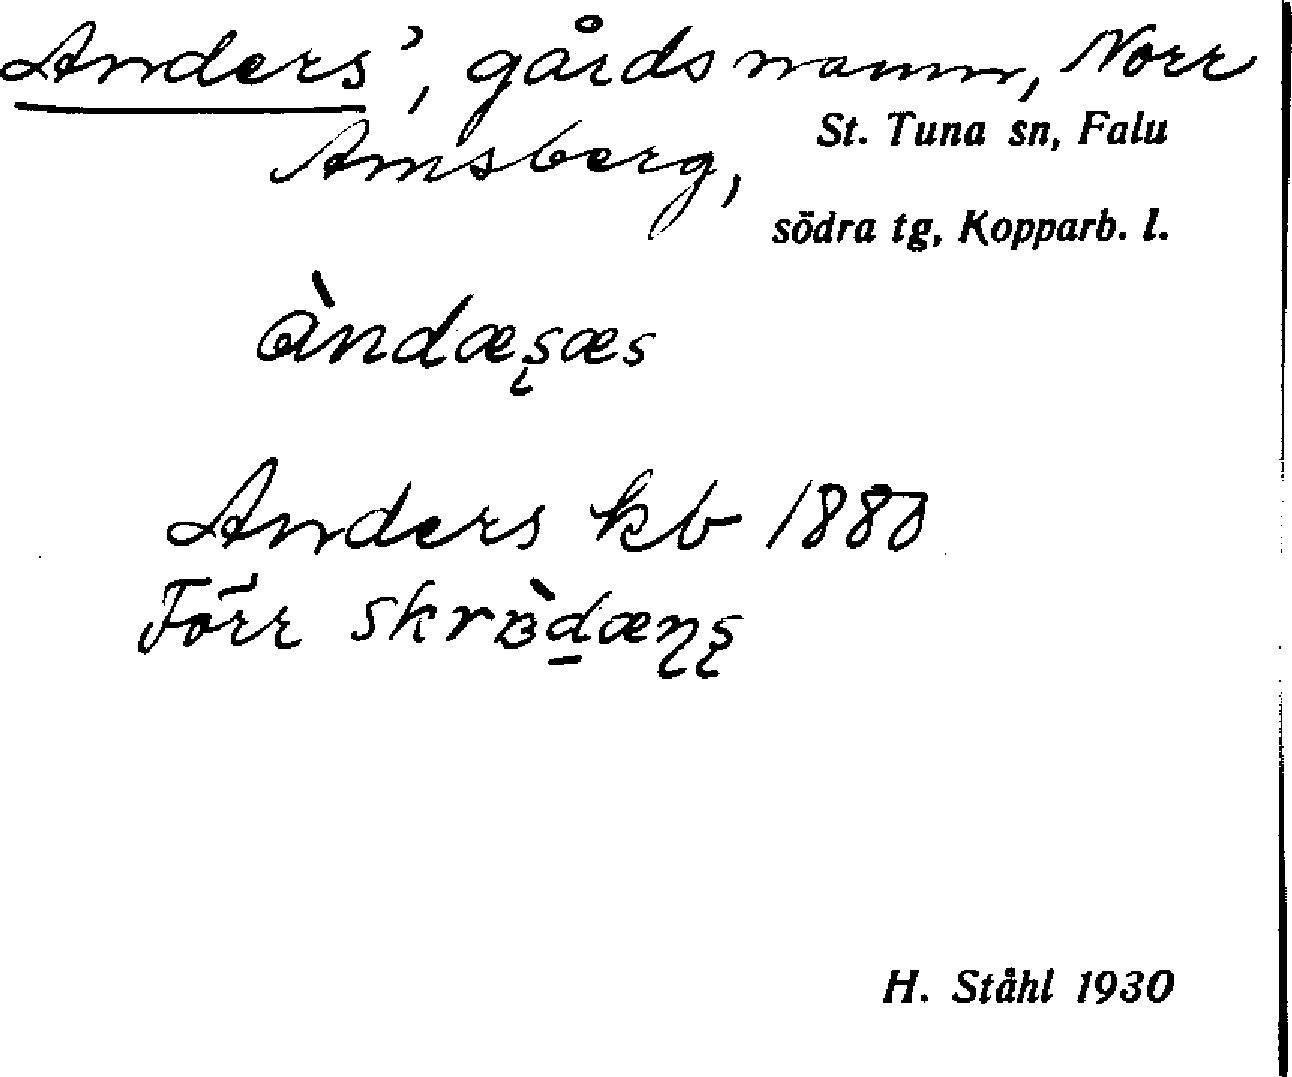 Anders', gårdsnamn, Norr
Amsberg, St. Tuna sn, Falu
södra tg, Kopparb. l.
àndæʂæs
Anders kb 1880
Förr
H. Ståhl 1930